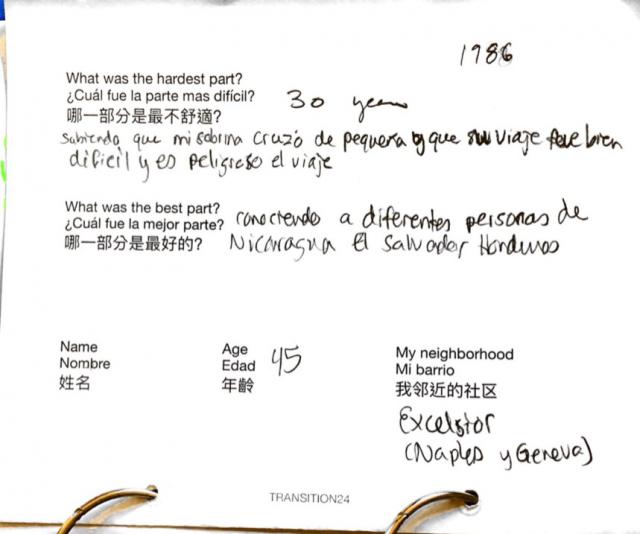 1986
What was the hardest part?
¿Cuál fue la parte mas difícil? 30 years
哪一部分是最不舒適?
Sabiendo que mi sobrina cruzó de pequeña y que su viaje fue bien
dificil y es peligroso el viaje
What was the best part?
¿Cuál fue la mejor parte? conociendo a diferentes personas de
哪一部分是最好的? Nicaragua El Salvador Honduras
Name
Nombre
姓名
Age
Edad 45
年齡
My neighborhood
Mi barrio
我邻近的社区
Excelsior
(Naples y Geneva)
TRANSITION24